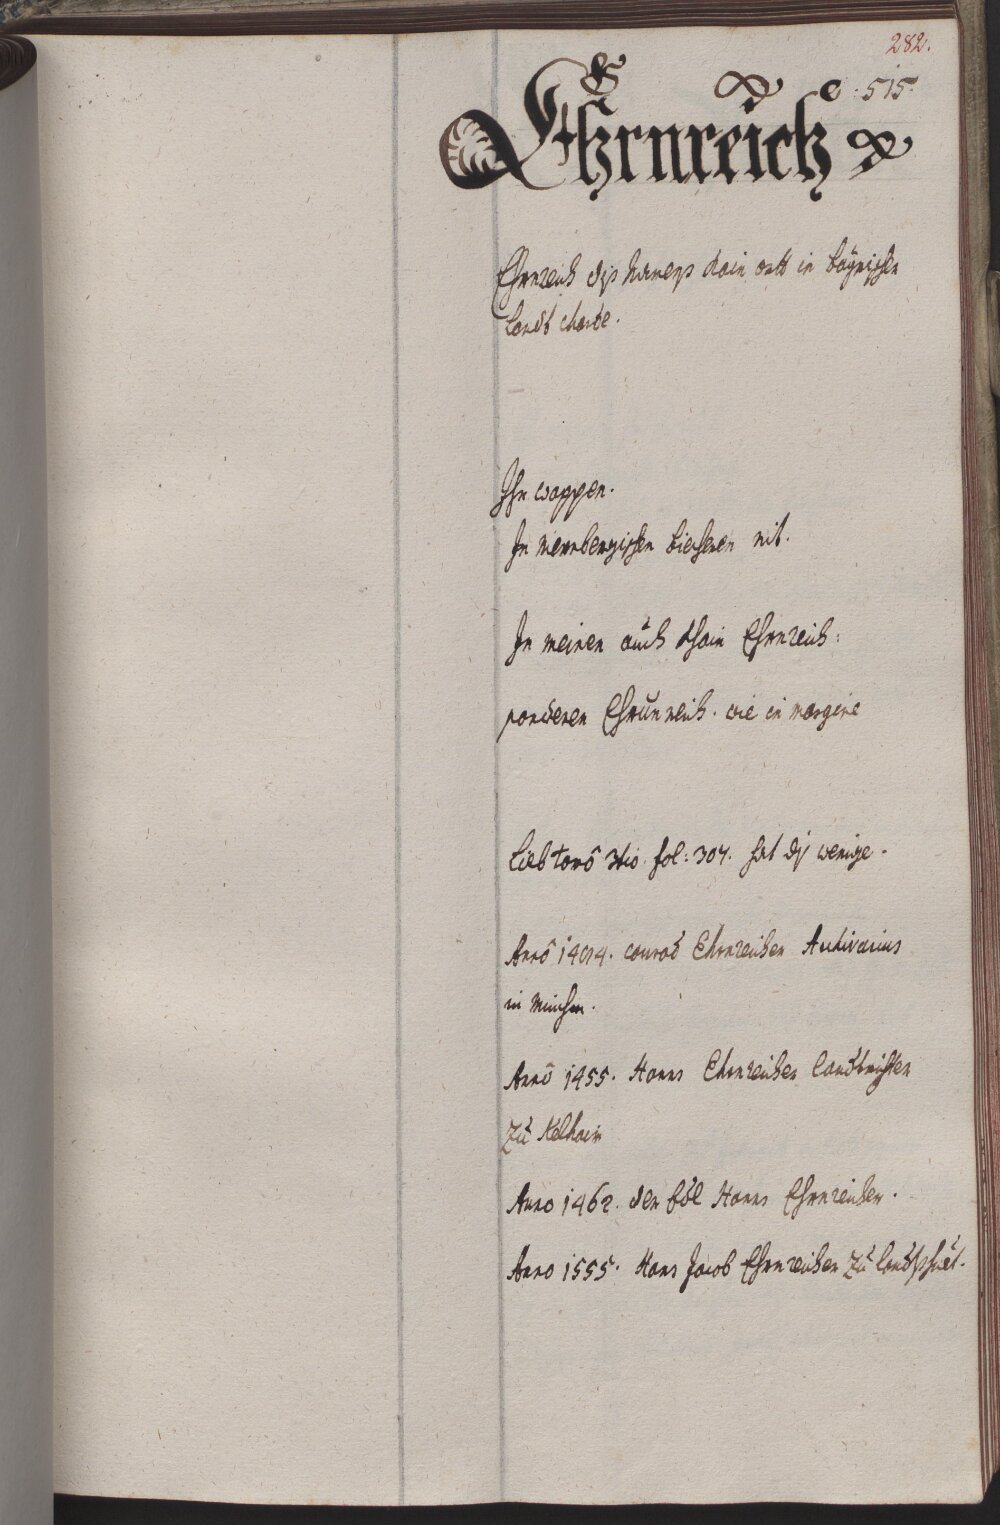 282.
515.
Ehrnreich
Ehrnreich diss namens kain ortt in bayrischer
landt charte.
Ihr wappen.
In niernbergischen biecheren nit.
In meinen auch khain Ehrnreich:
sonderen Ehrunreich. wie in margine
Lieb tomô 3tio. fol: 304. hat dis wenige.
Annô 1414. conrad Ehrnreicher Archivarius
in München.
Annô 1455. Hanns Ehrnreicher landtrichter
zu Kelhaim
Anno 1462. der Edl Hanns Ehrnreicher.
Anno 1555. Hans Jacob Ehrnreicher zu landtshuet.